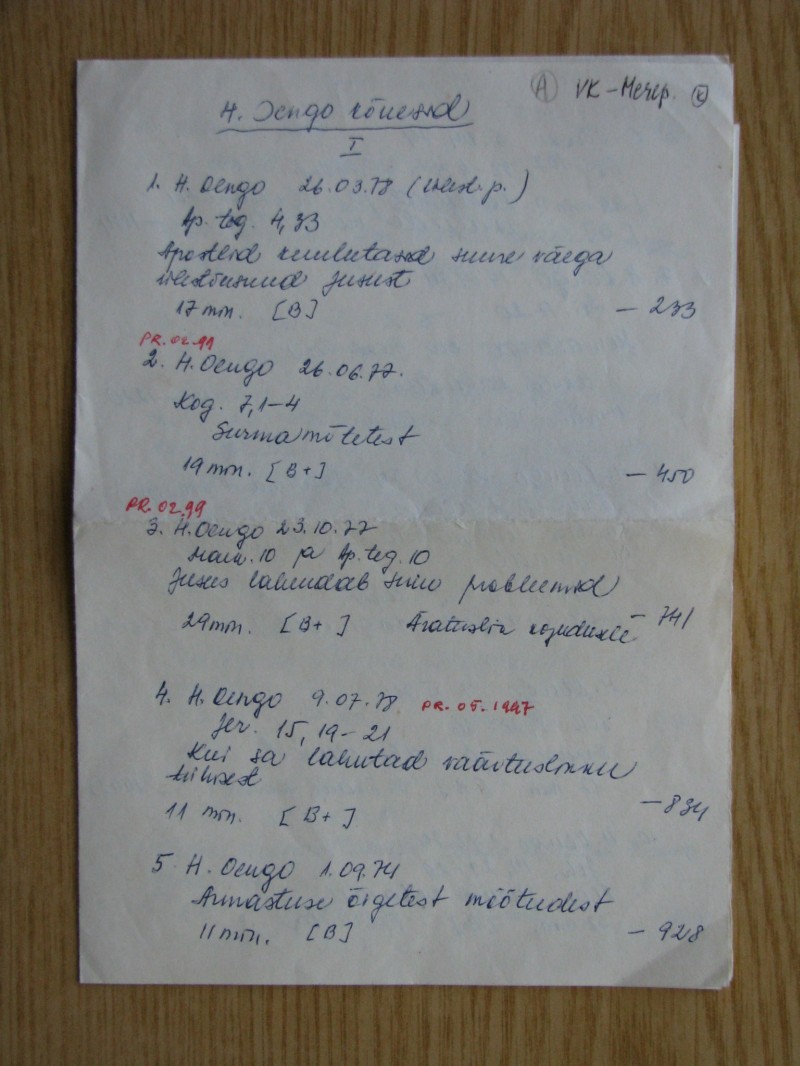 (A) VK-Merep. (K)
H. Oengo kõnesid
I
1. H. Oengo 26.03.78 (ülest.p.)
Ap. teg. 4,33
Apostlid kuulutasid suure väega
ülestõusnud Jusust
17 min. [B] - 233
PR. 02.99
2. H. Oengo 26.06.77.
Kog. 7,1-4
Surma mõtetest
19 min. [B+] - 450
PR. 02.99
3. H. Oengo 23.10.77
10 ja Ap. teg. 10
Jusus lahendab sinu probleemid
29 min. [B+] Äratuslik kogudusele - 741
4. H. Oengo 9.07.78 PR. 05.1997
Jer. 15, 19-21
Kui sa lahutad väärtusliku
tühisest
11 min. [B+] - 834
5 H. Oengo 1.09.74
Armastuse õigetest mõõtudest
11 min. [B] - 928